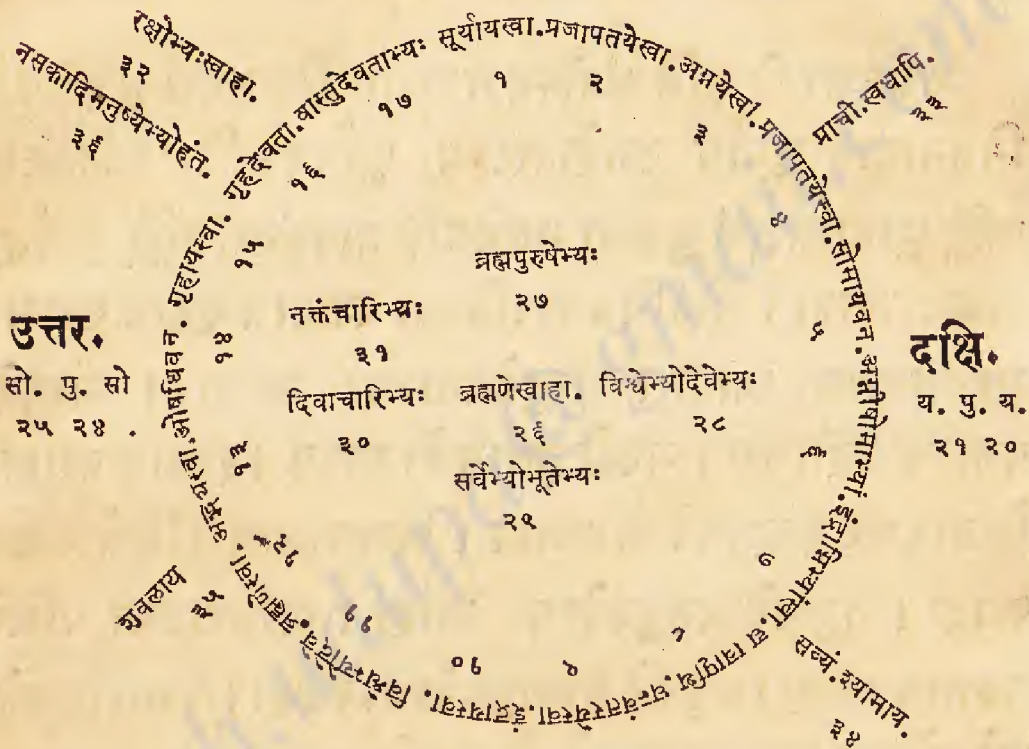 रक्षोभ्यःस्वाहा.
३२
नसकादिमनुष्येभ्योहंत.
३६
प्राची.स्वधापि.
३३
सूर्यायस्वा.प्रजापतयेस्वा.अग्नयेस्वा.प्रजापतयेस्वा.सोमायवन.अग्नीषोमाभ्यां.इंद्राग्निभ्यांस्वा.द्यावापृथि.धन्वंतरयेस्वा.इंद्रायस्वा.विश्वेभ्योदेवे.ब्रह्मणेस्वा.अद्भ्यस्वा.ओषधिवन.गृहायस्वा.गृहदेवता.वास्तुदेवताभ्यः
१ २ ३ ४ ५ ६ ७ ८ ९ १० ११ १२ १३ १४ १५ १६ १७
ब्रह्मपुरुषेभ्यः
२७
नक्तंचारिभ्यः
३१
दिवाचारिभ्यः ब्रह्मणेस्वाहा. विश्वेभ्योदेवेभ्यः
३० २६ २८
सर्वेभ्योभूतेभ्यः
२९
उत्तर.
सो. पु. सो
२५ २४ .
दक्षि.
य. पु. य.
२१ २०
शवलाय
३५
सव्यं.श्यामाय.
३४